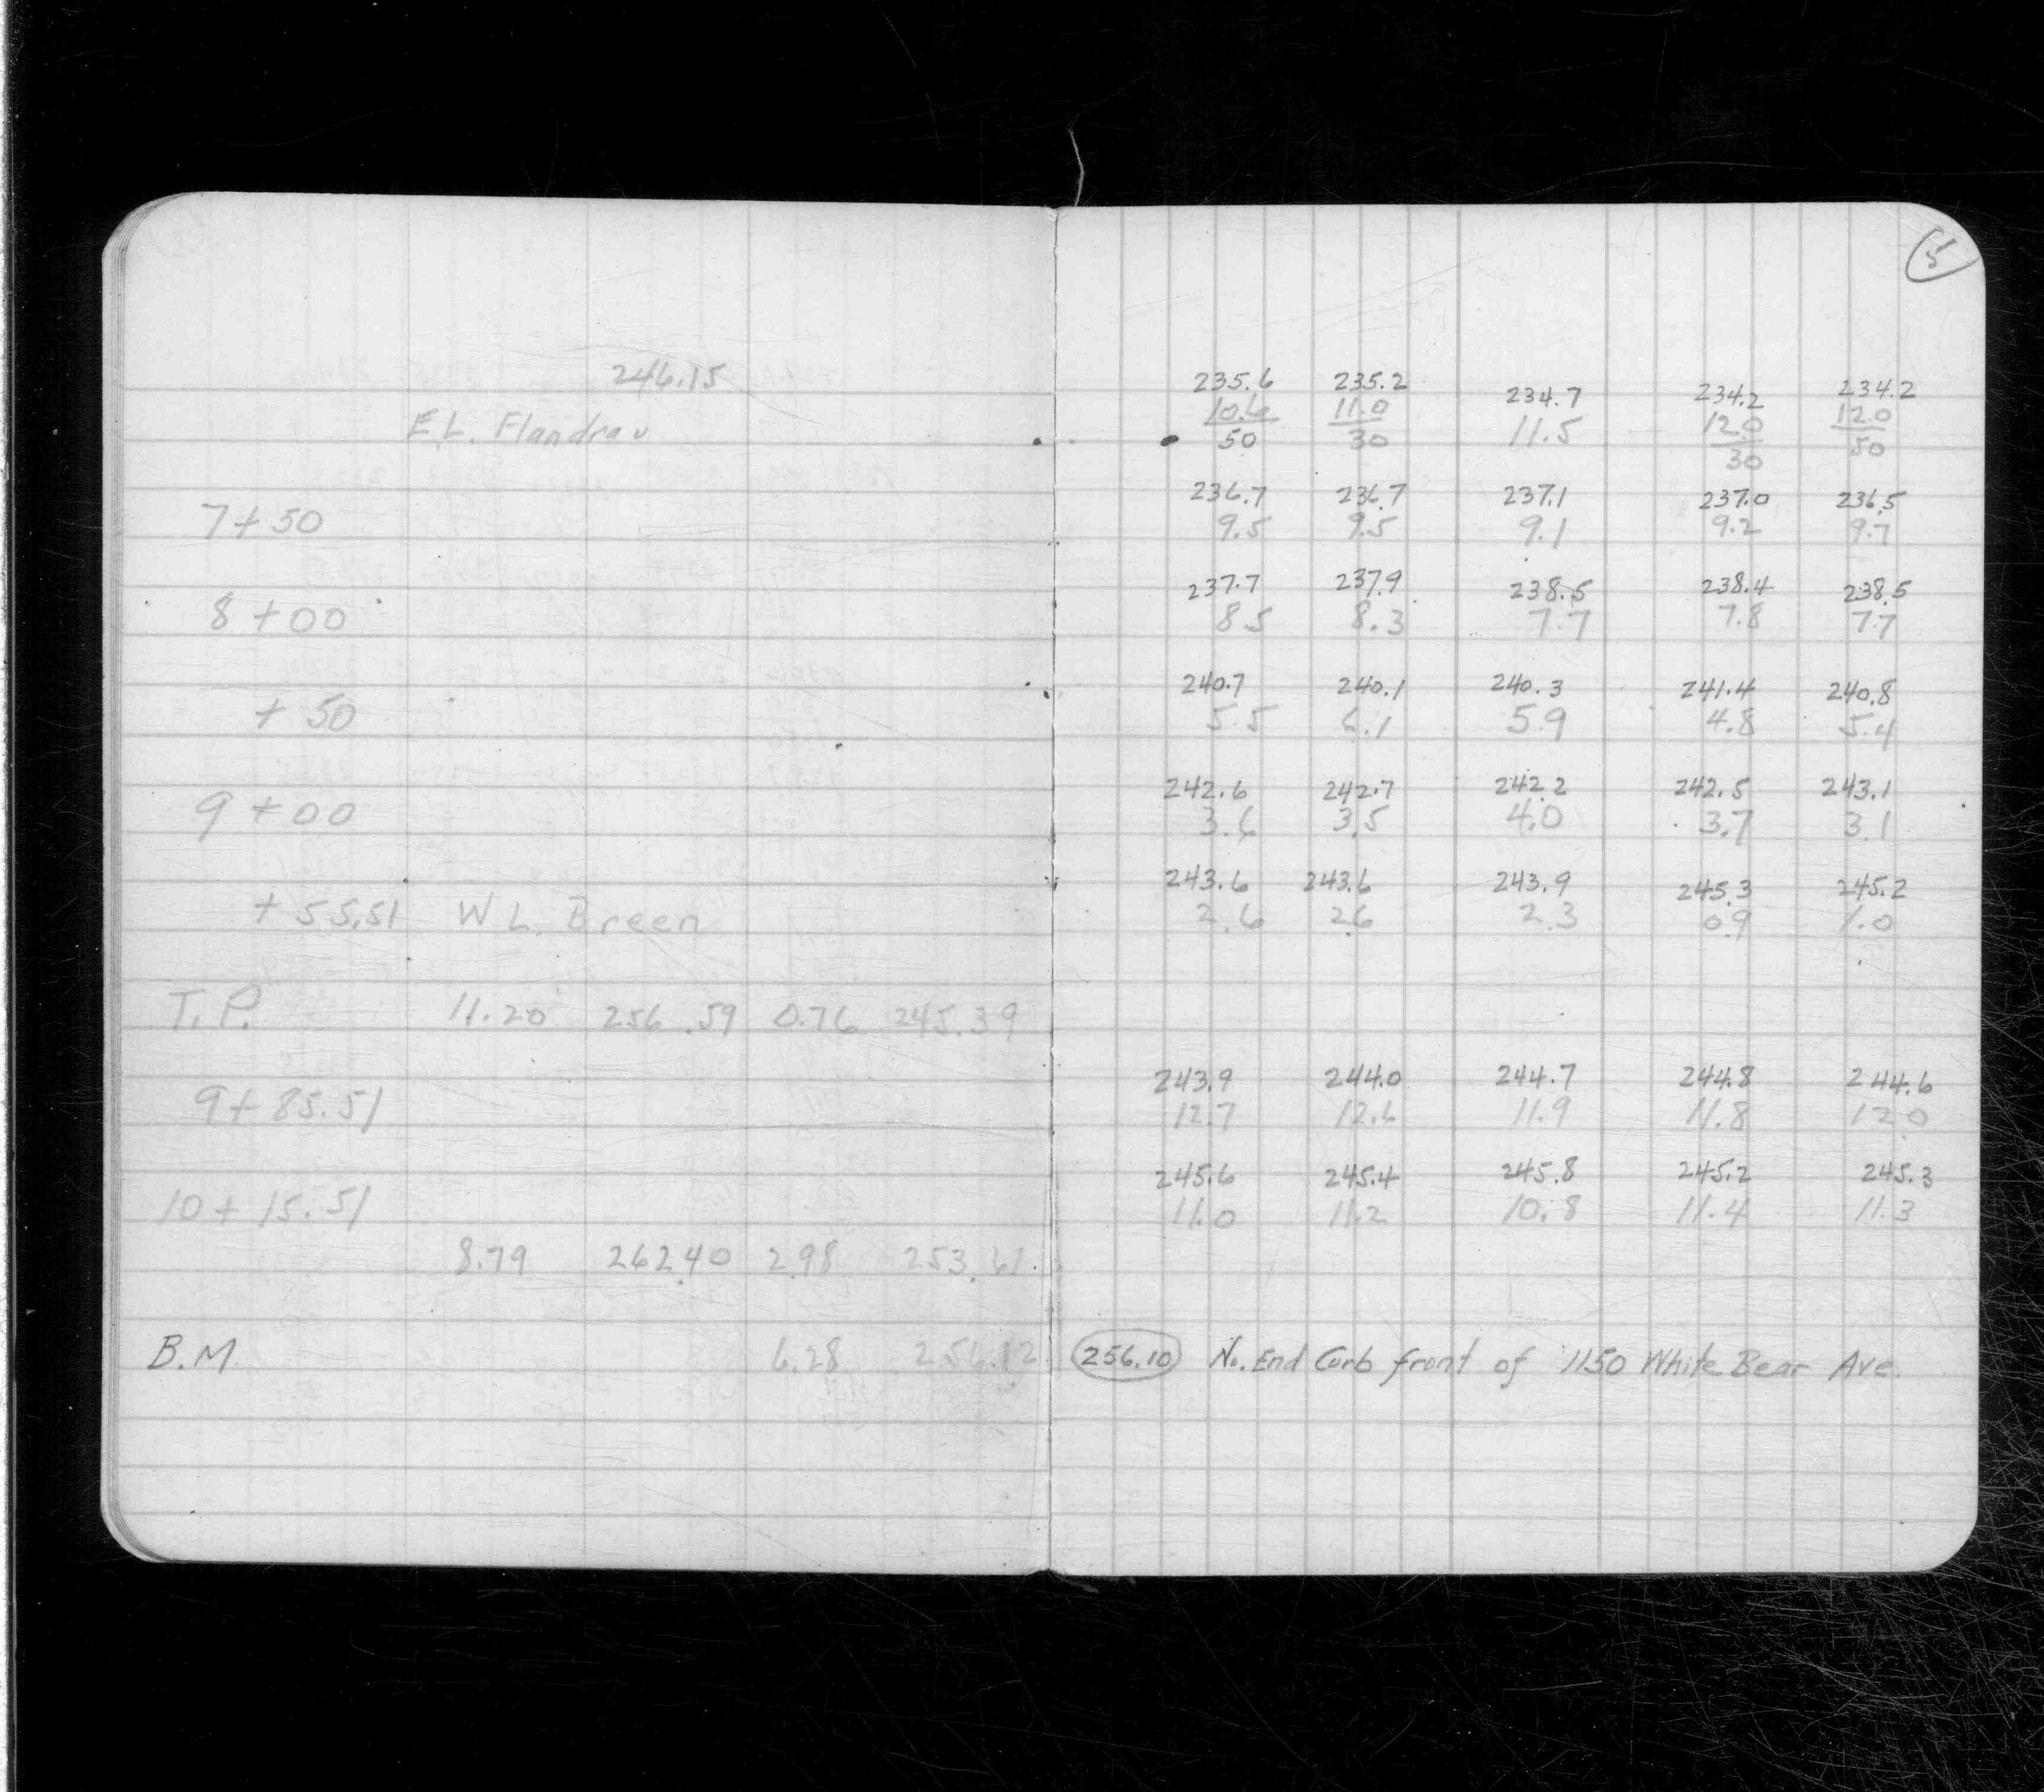 5
246.15
235.6 235.2 234.7 234.2 234.2
E.L. Flandrau
10.6 11.0 11.5 12.0 12.0
50 30 30 50
236.7 236.7 237.1 237.0 236.5
7+50 9.5 9.5 9.1 9.2 9.7
237.7 237.9 238.5 238.4 238.5
8+00 8.5 8.3 7.7 7.8 7.7
240.7 240.1 240.3 241.4 240.8
+50 5.5 6.1 5.9 4.8 5.4
242.6 242.7 242.2 242.5 243.1
9+00 3.6 3.5 4.0 3.7 3.1
243.6 243.6 243.9 245.3 245.2
+55.51 W.L. Breen 2.6 2.6 2.3 0.9 1.0
T.P. 11.20 256.59 0.76 245.39
243.9 244.0 244.7 244.8 244.6
9+85.51 12.7 12.6 11.9 11.8 12.0
245.6 245.4 245.8 245.2 245.3
10+15.51 11.0 11.2 10.8 11.4 11.3
8.79 262.40 2.98 253.61
B.M. 6.28 256.12 256.10 No. End Curb front of 1150 White Bear Ave.